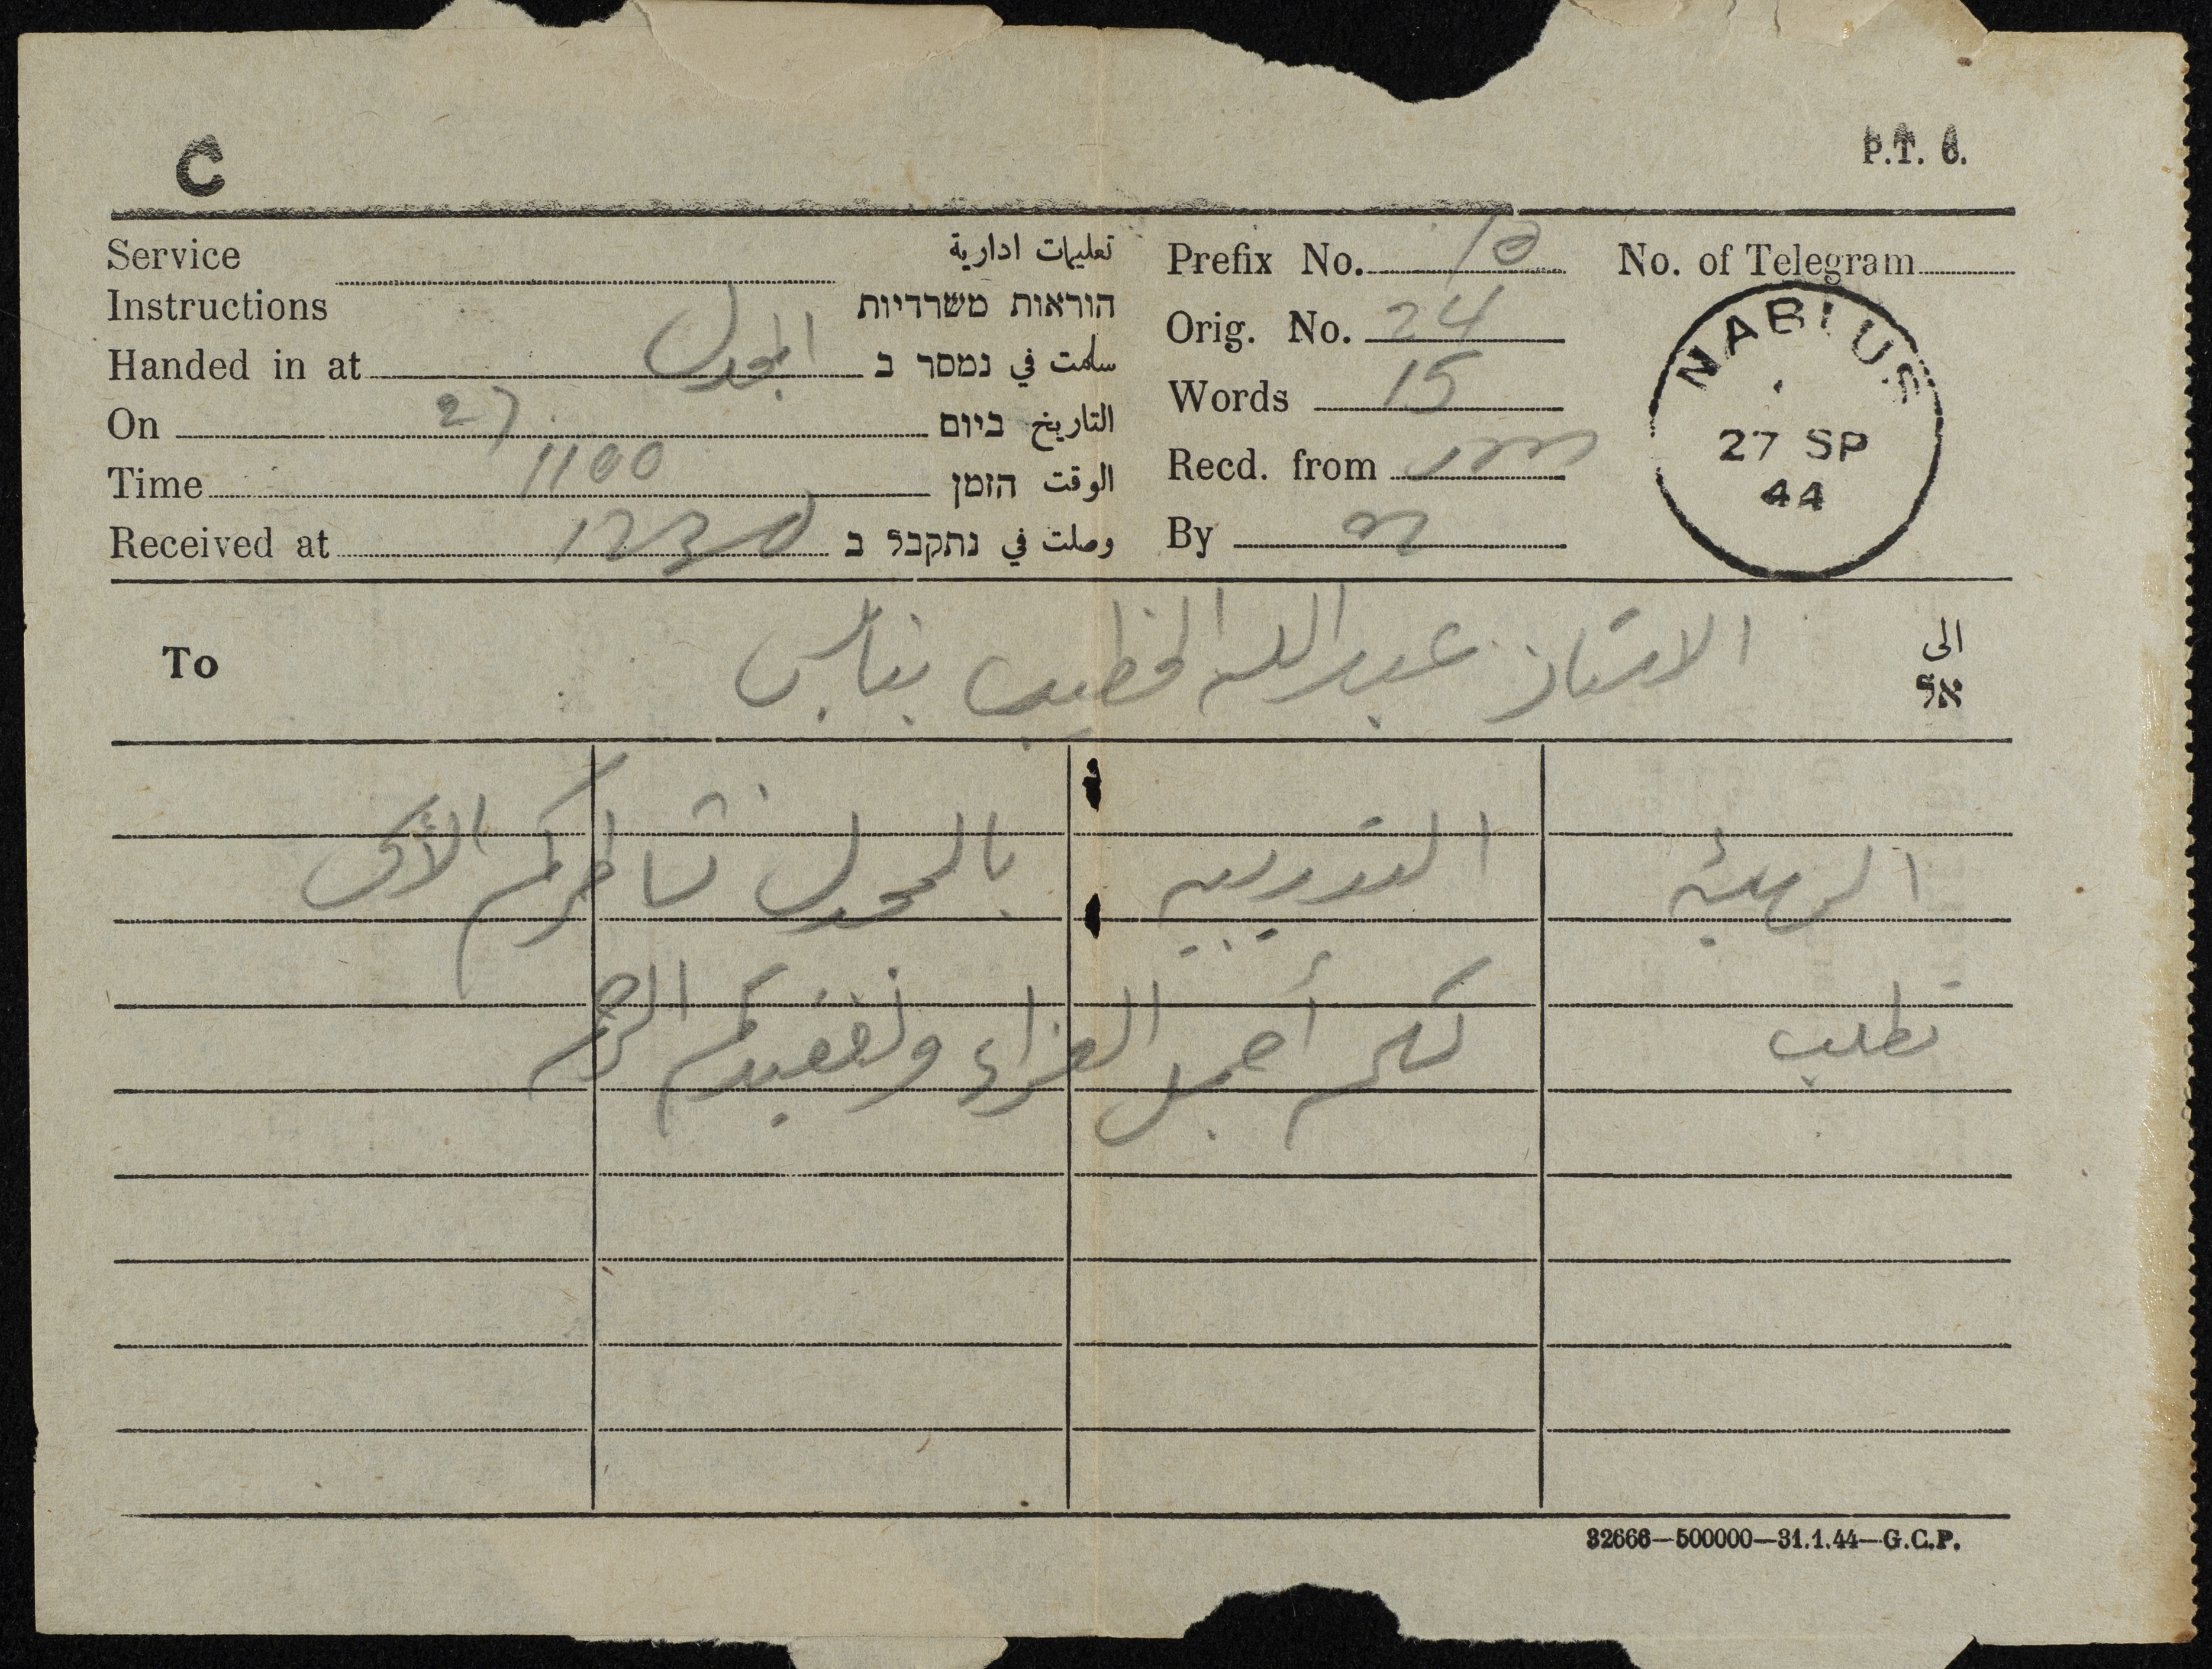 C
P.T. 6.
Service
Instructions
تعليمات ادارية
הוראות משרדיות
Handed in at المجدل سلمت في נמסר ב
On 27 التاريخ ביום
Time 1100 الوقت הזמן
Received at 1230 وصلت في נתקבל ב
Prefix No. 10
Orig. No. 24
Words 15
Recd. from
By
No. of Telegram
NABLUS
27 SP
44
To الاستاذ عبدالله الخطيب بنابلس الى
אל
الهيئة التدريسيه بالمجدل تشاطركم الأسى
تطلب لكم أجمل العزاء ولفقيدكم الرحمة
32666—500000—31.1.44—G.C.P.